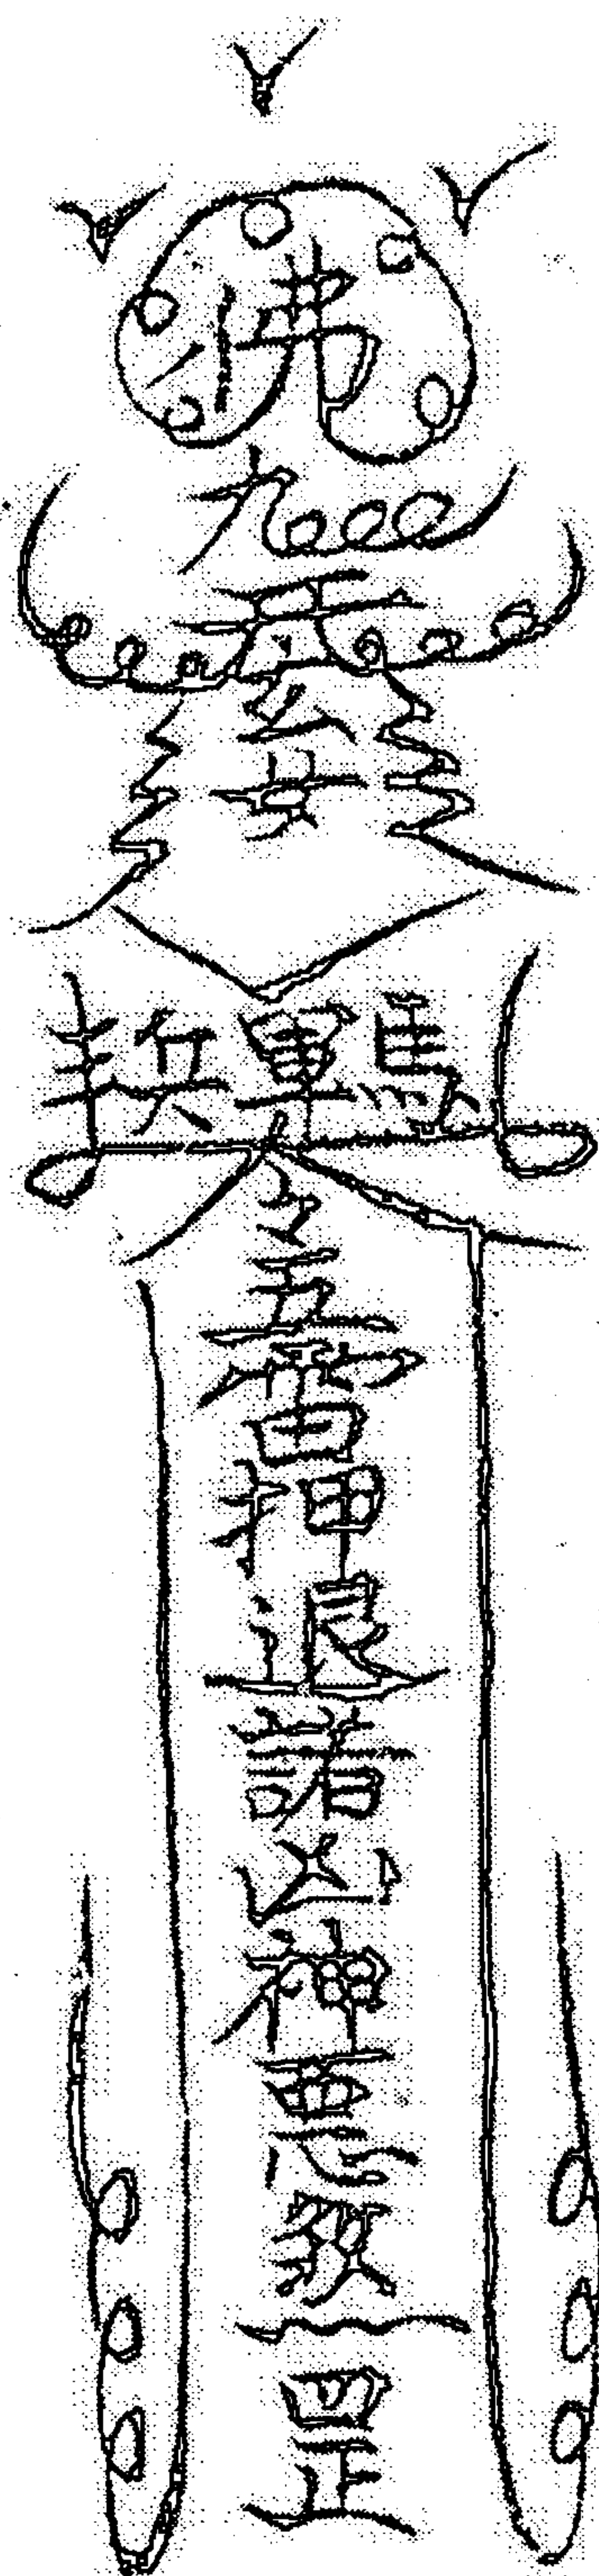 佛
九天玄女
兵軍馬
令
五雷押退諸凶神惡煞罡